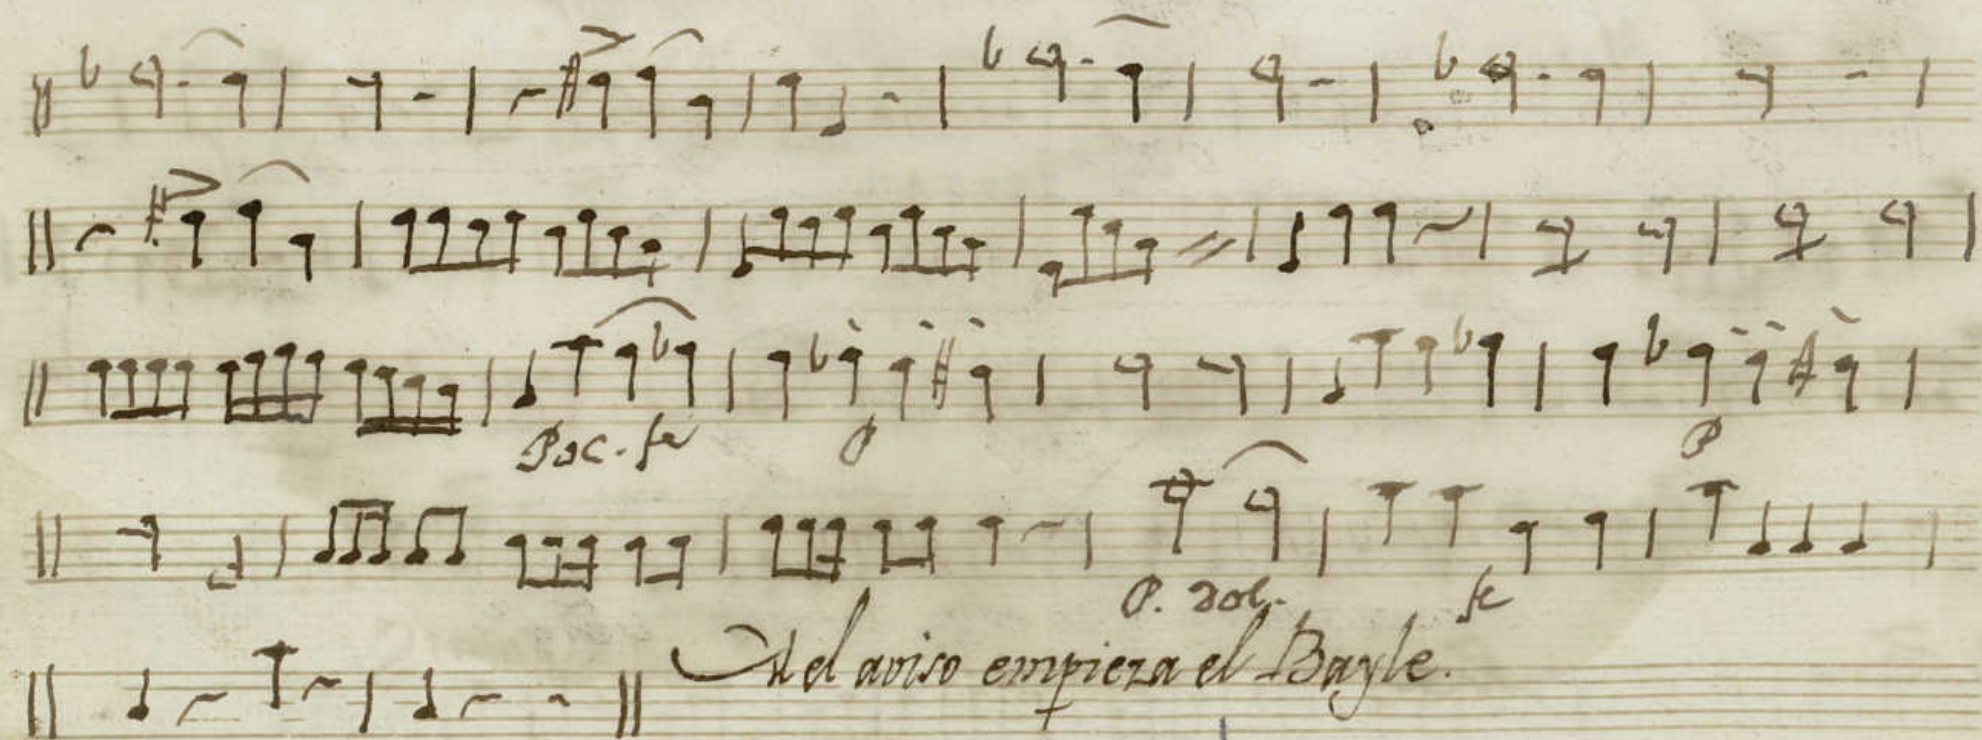 Poc. fe P P
P. dol. fe
Al el aviso empieza el Bayle.